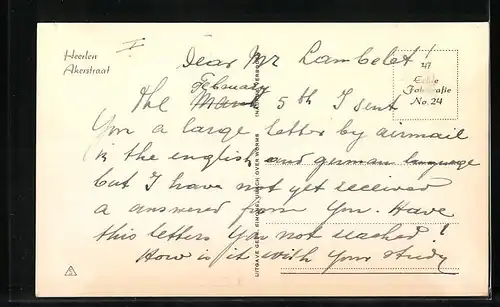 Heerlen
Akerstraat
I
Dear Mr Lambelet!
February
The March 5th I sent
You a large letter by airmail
in the english and german language
but I have not yet received
a answered from You. Have
this letters You not reached!
How is it with Your study
Echte
Fotografie
No. 24
UITGAVE GEBR. SIMONS, UBACH OVER WORMS